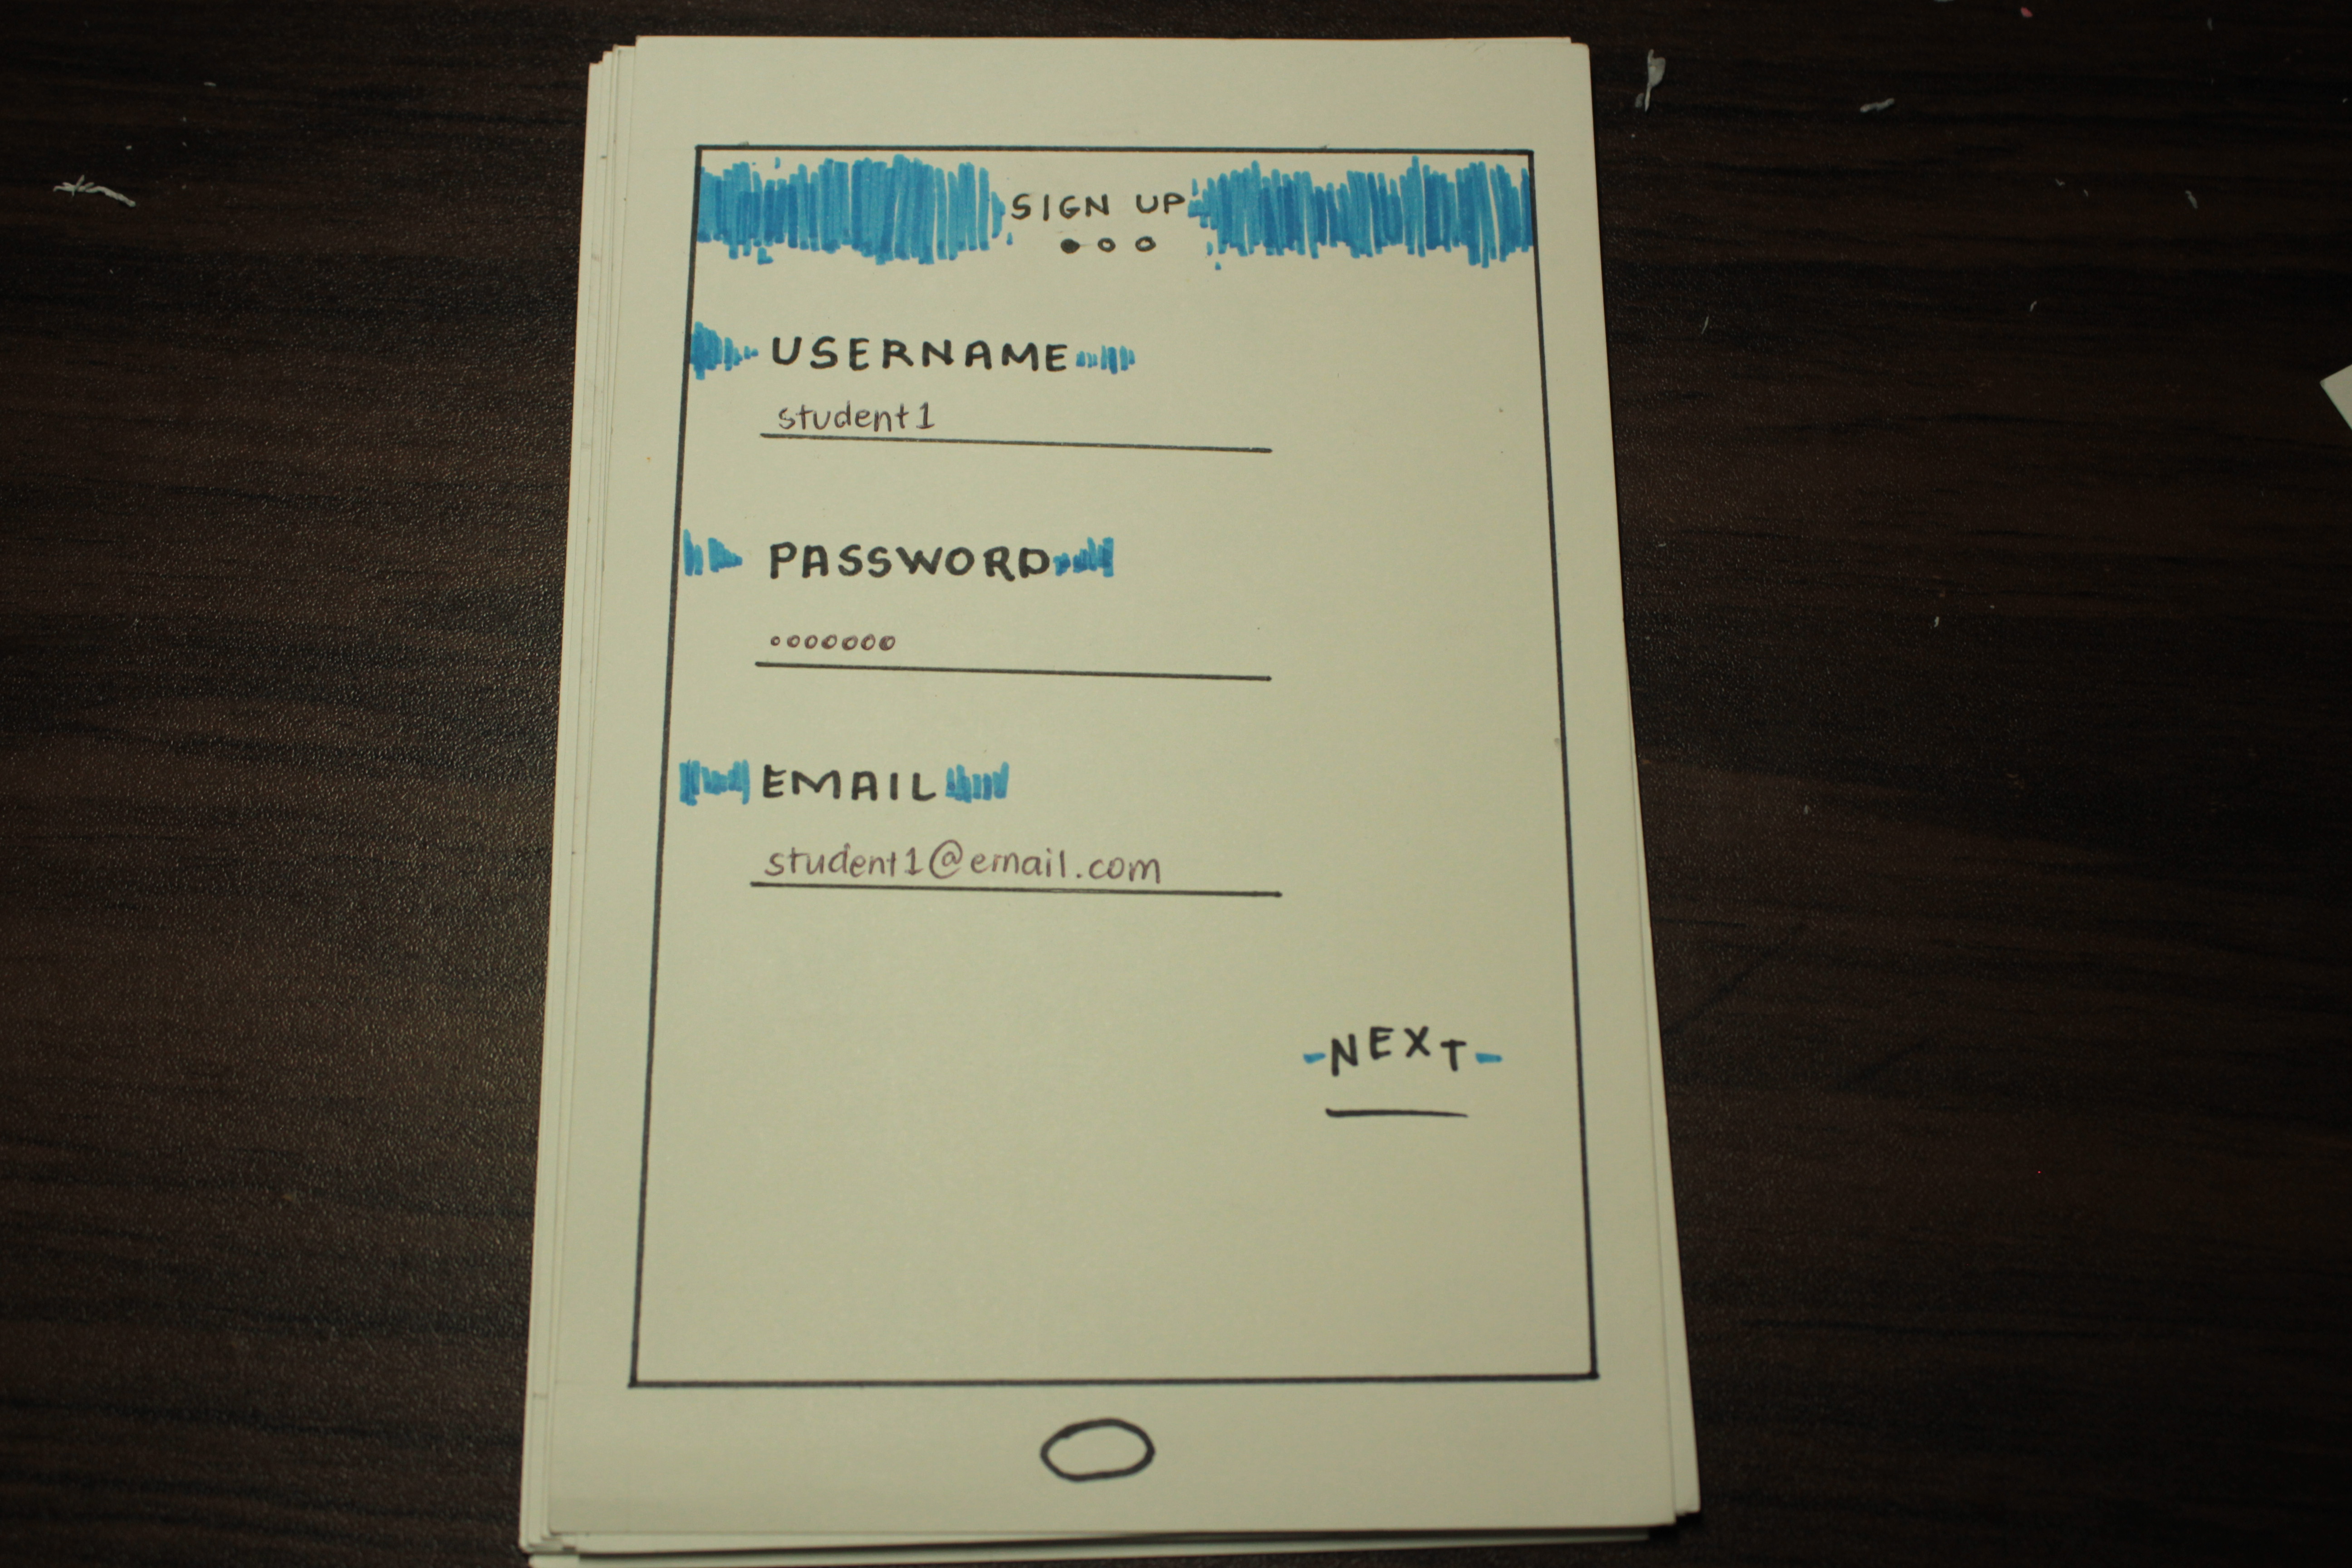 SIGN UP
USERNAME
student1
PASSWORD
EMAIL
student1@email.com
-NEXT-